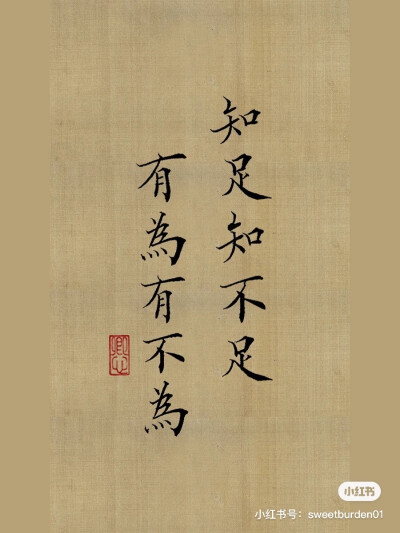 知足知不足
有為有不為
小红书
小红书号：sweetburden01